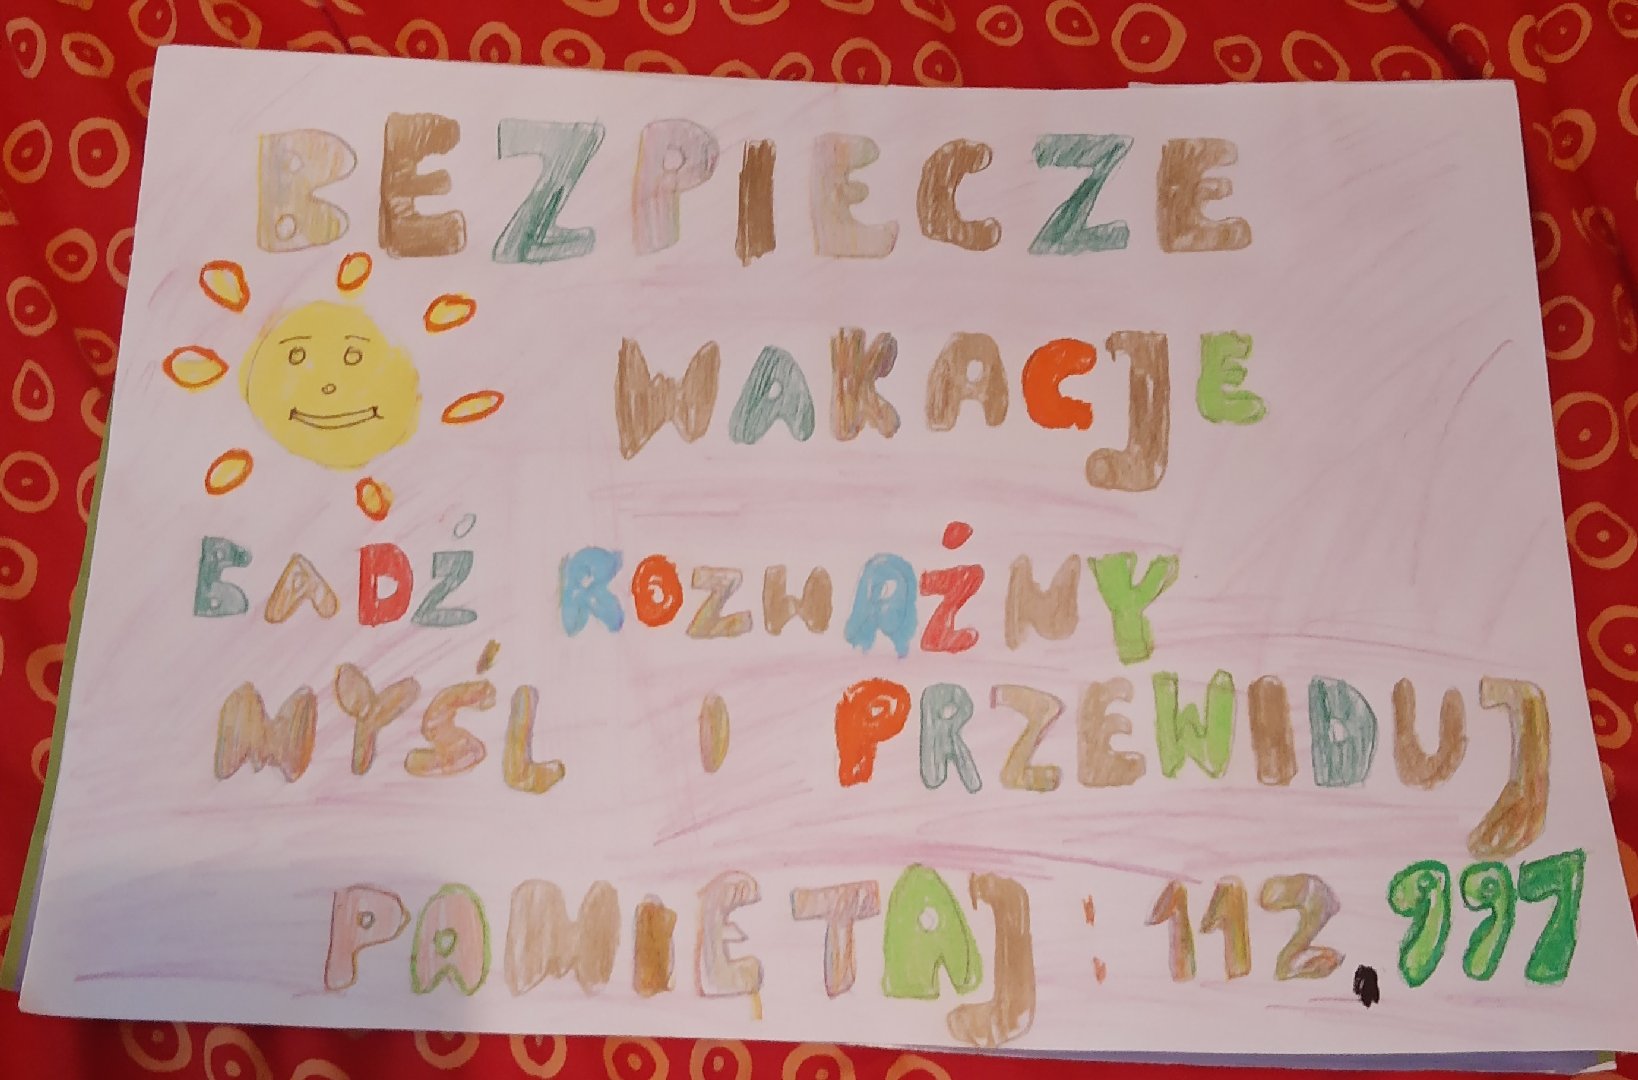 BEZPIECZE
WAKACJE
BADŻ ROZWAŻNY
MYŚL I PRZEWIDUJ
PAMIĘTAJ : 112, 997